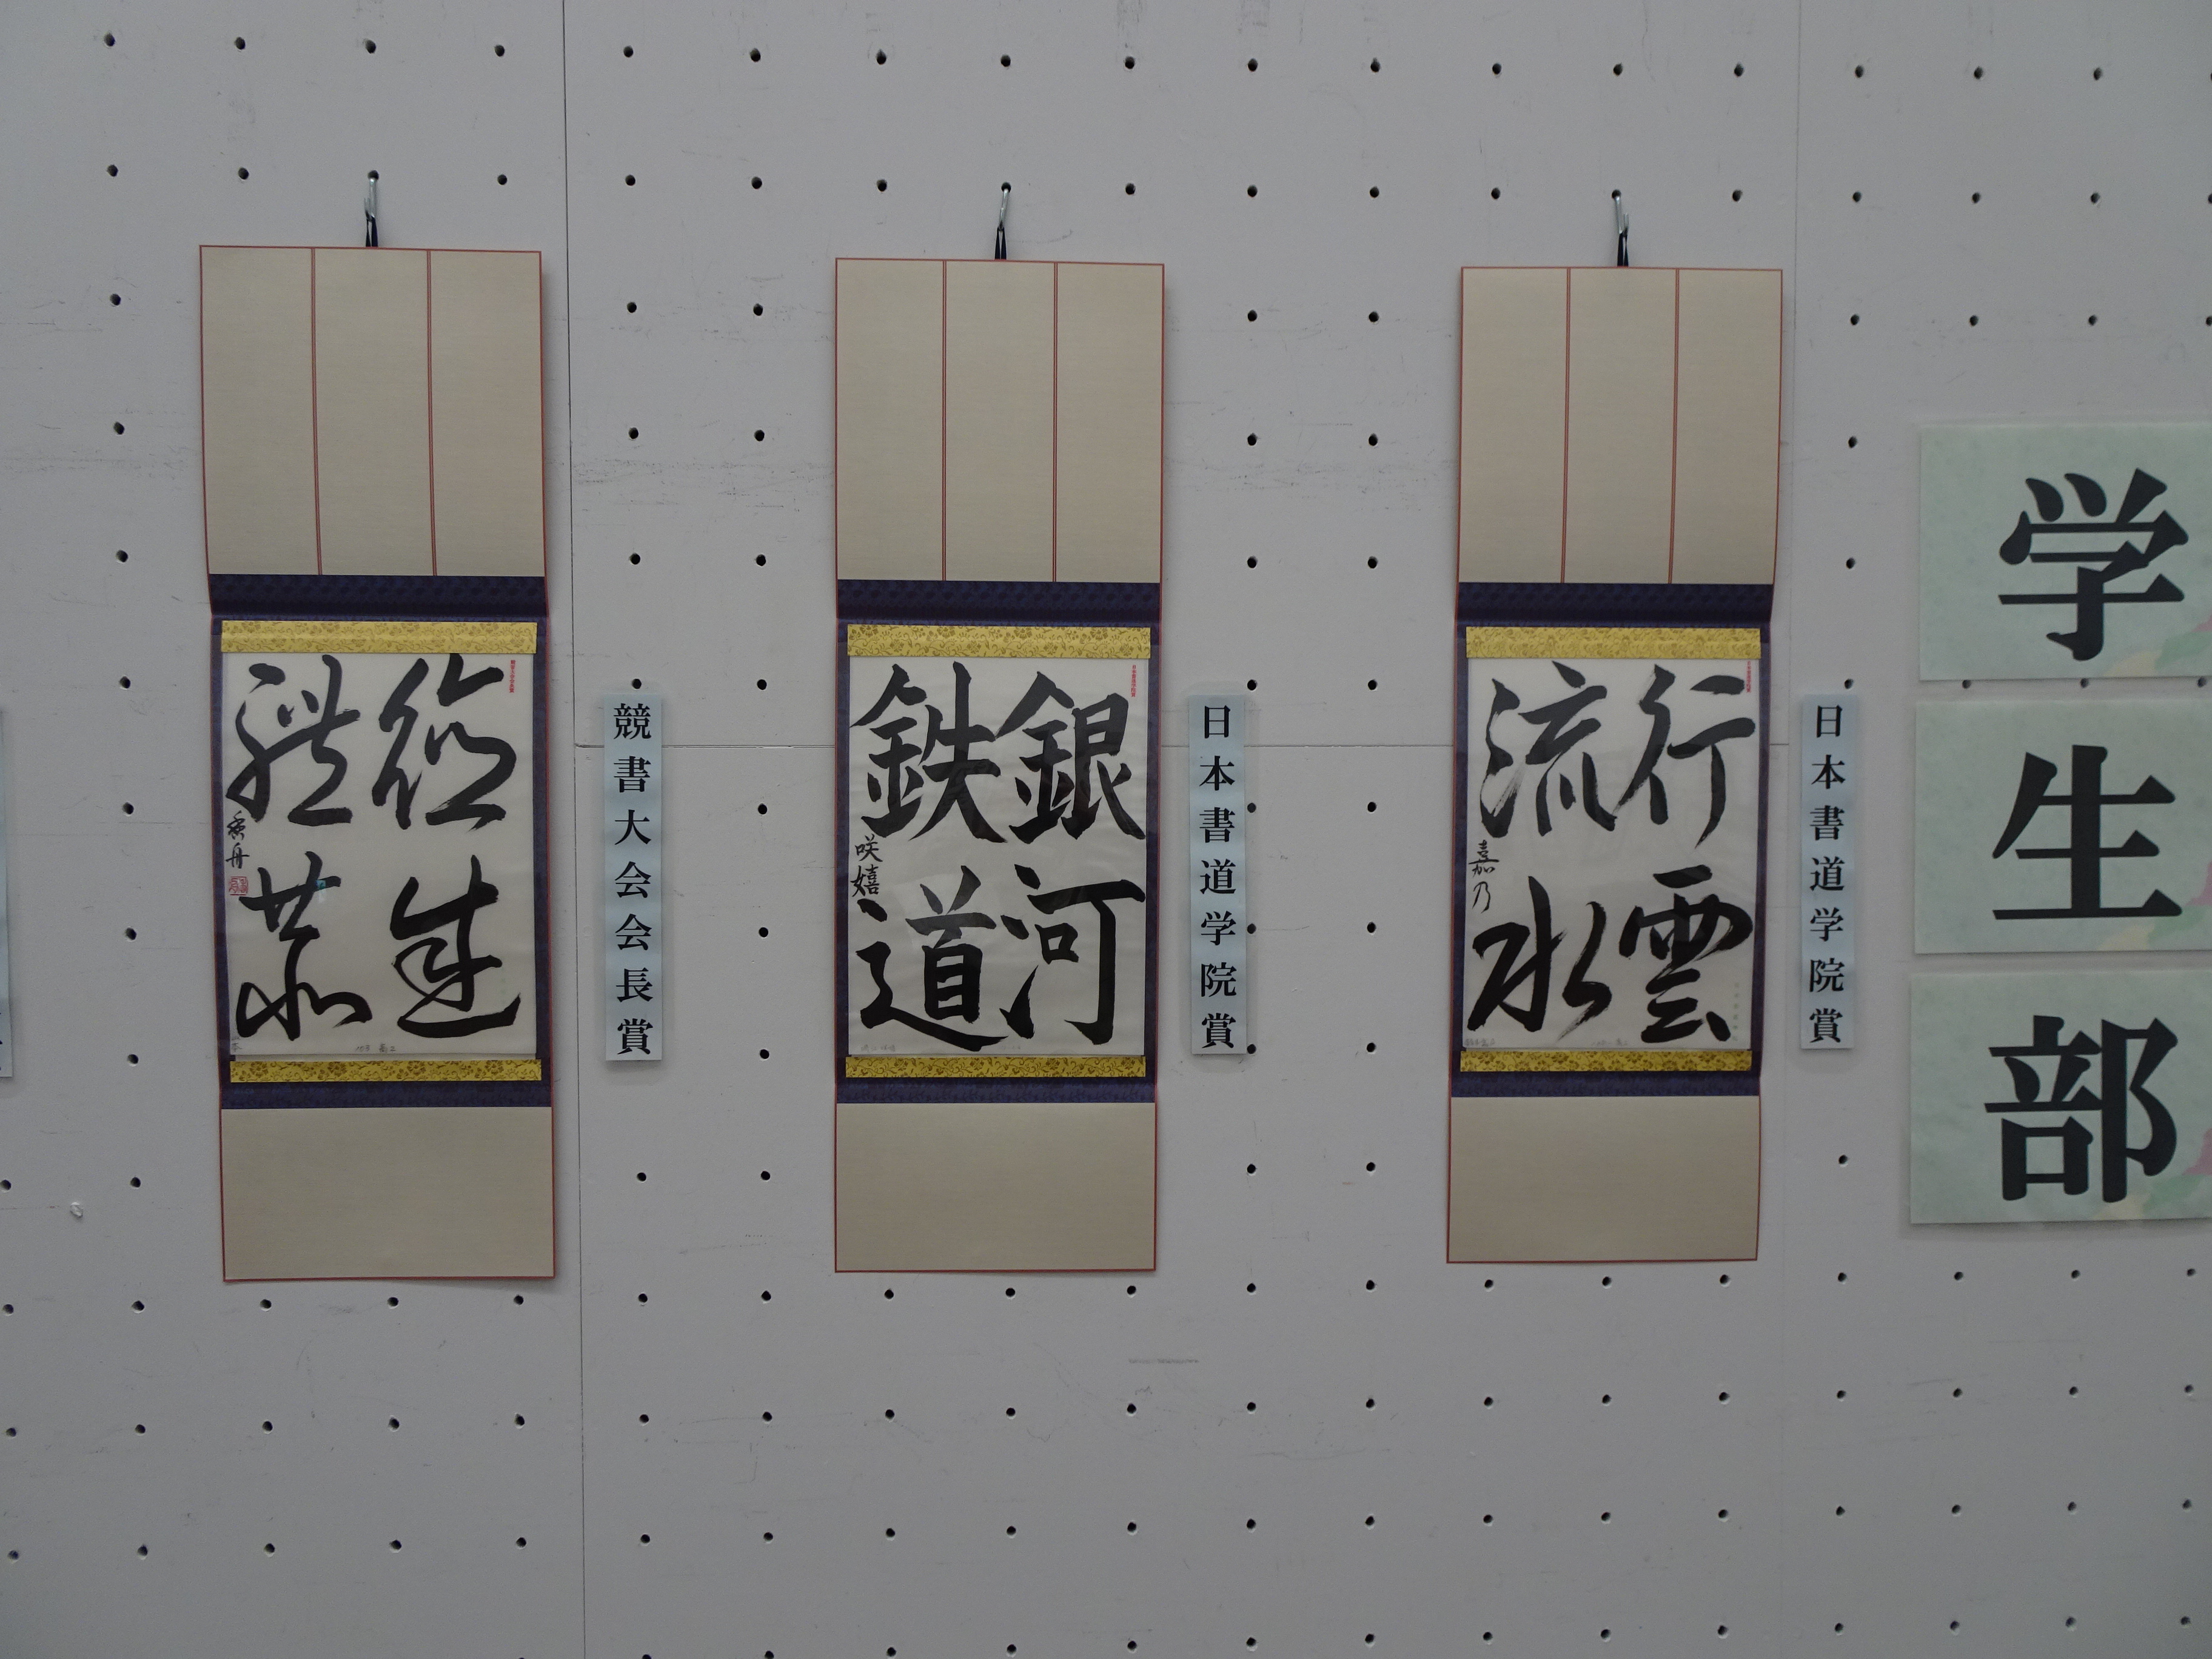 学生部
日本書道学院賞
行雲
流水
嘉乃
日本書道学院賞
銀河
鉄道
咲嬉
競書大会会長賞
香舟